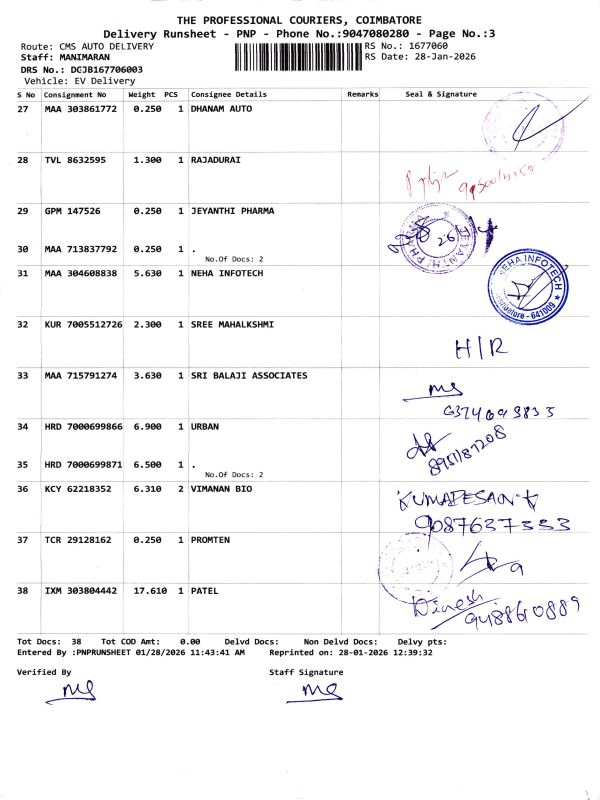 THE PROFESSIONAL COURIERS, COIMBATORE
Delivery Runsheet - PNP - Phone No.:9047080280 - Page No.:3
Route: CMS AUTO DELIVERY RS No.: 1677060
Staff: MANIMARAN RS Date: 28-Jan-2026
DRS No.: DGJB167706003
Vehicle: EV Delivery
S No Consignment No Weight PCS Consignee Details Remarks Seal & Signature
27 MAA 303861772 0.250 1 DHANAM AUTO
28 TVL 8632595 1.300 1 RAJADURAI
29 GPM 147526 0.250 1 JEYANTHI PHARMA
30 MAA 713837792 0.250 1 .
No.Of Docs: 2
31 MAA 304608838 5.630 1 NEHA INFOTECH
NEHA INFOTECH
Coimbatore - 641009
32 KUR 7005512726 2.300 1 SREE MAHALKSHMI
H/R
33 MAA 715791274 3.630 1 SRI BALAJI ASSOCIATES
34 HRD 7000699866 6.900 1 URBAN
35 HRD 7000699871 6.500 1 .
No.Of Docs: 2
36 KCY 62218352 6.310 2 VIMANAN BIO
KUMARESAN.K
9087637333
37 TCR 29128162 0.250 1 PROMTEN
38 IXM 303804442 17.610 1 PATEL
Dinesh
Tot Docs: 38 Tot COD Amt: 0.00 Delvd Docs: Non Delvd Docs: Delvy pts:
Entered By :PNPRUNSHEET 01/28/2026 11:43:41 AM Reprinted on: 28-01-2026 12:39:32
Verified By Staff Signature